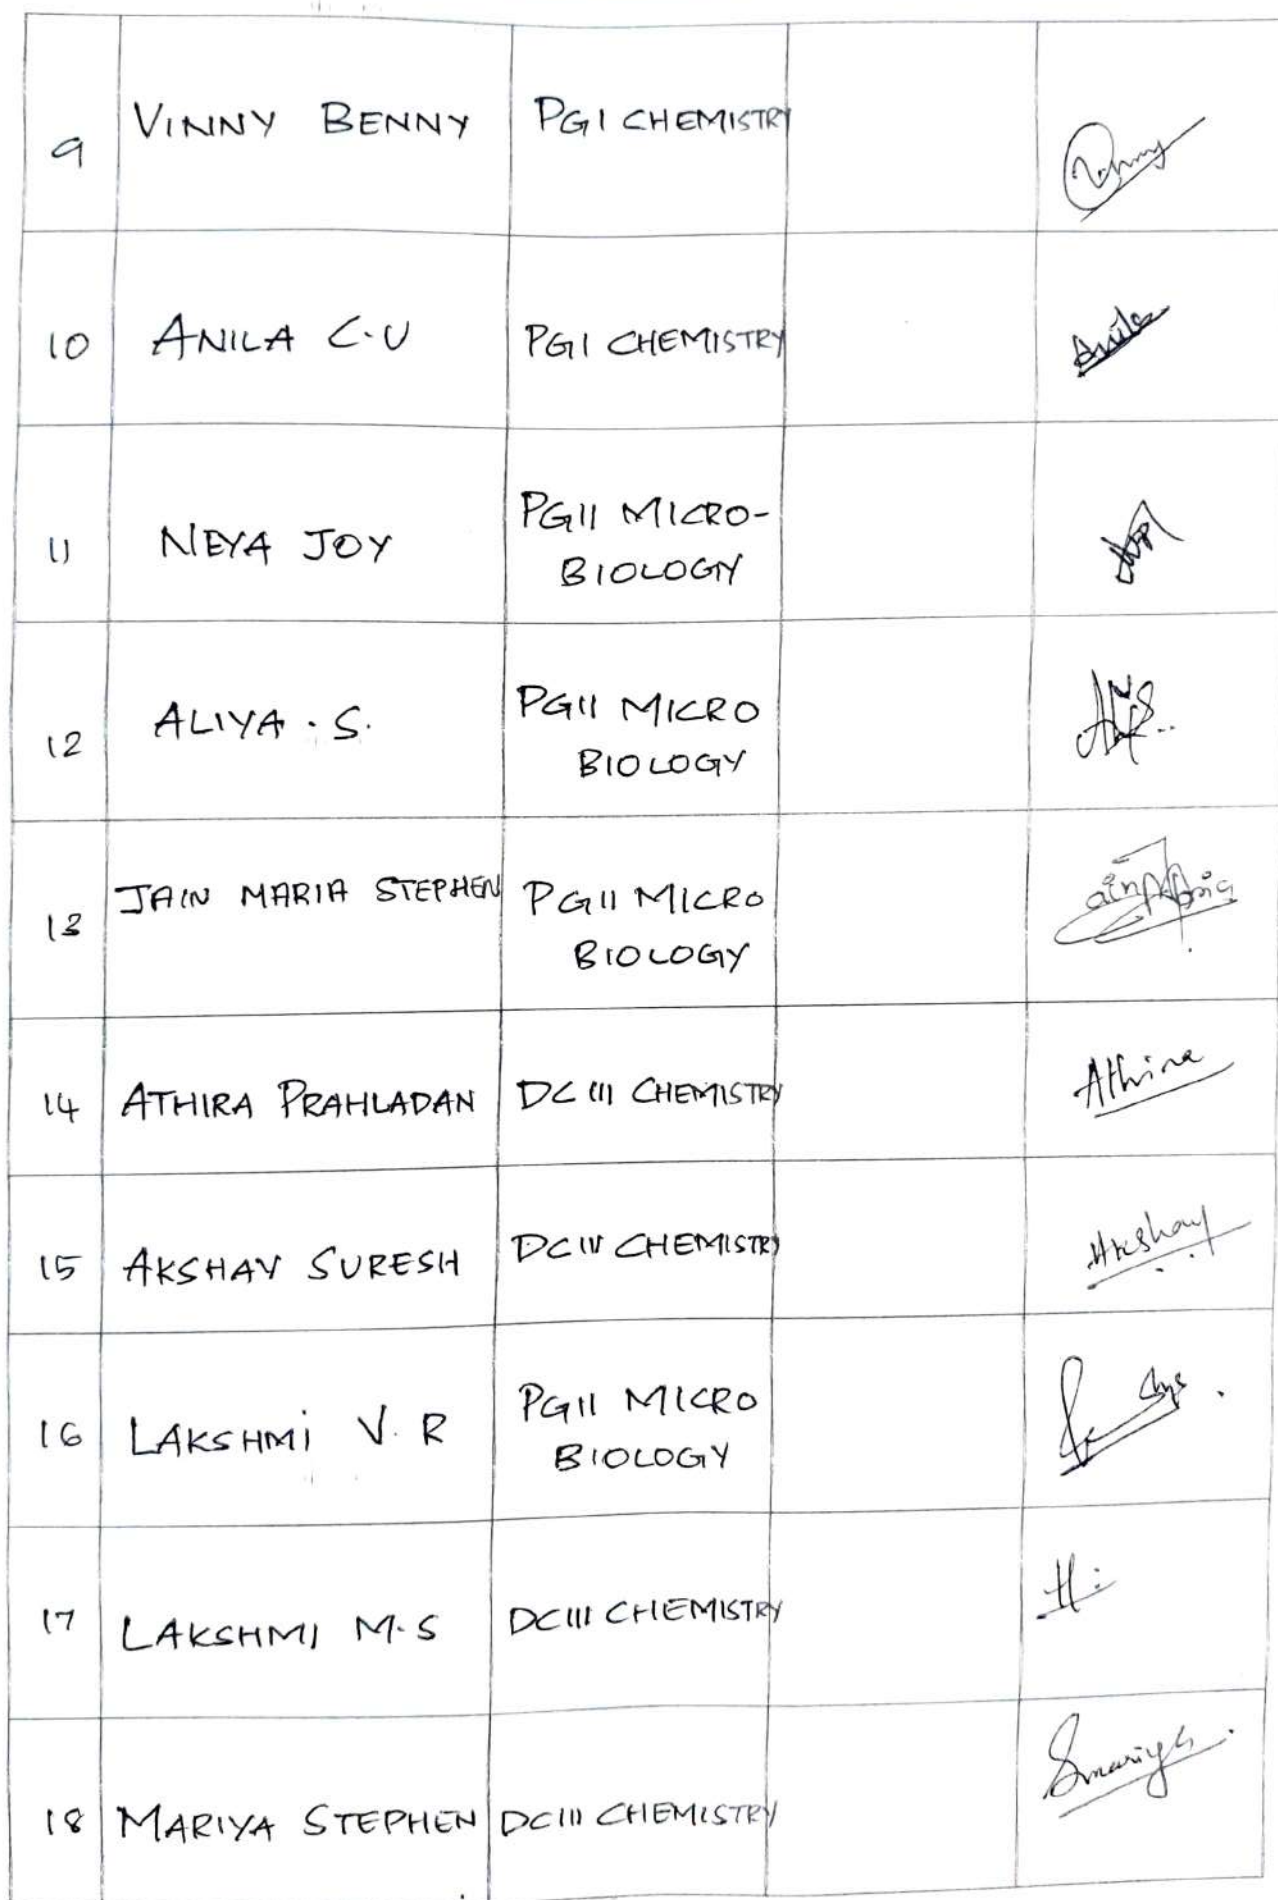 9 VINNY BENNY PG I CHEMISTRY
Vinny
10 ANILA C.U PG I CHEMISTRY
Anila
11 NEYA JOY PG II MICRO-
BIOLOGY
12 ALIYA . S. PG II MICRO
BIOLOGY
13 JAIN MARIA STEPHEN PG II MICRO
BIOLOGY
14 ATHIRA PRAHLADAN DC III CHEMISTRY
Athira
15 AKSHAY SURESH DC IV CHEMISTRY
Akshay
16 LAKSHMI V. R PG II MICRO
BIOLOGY
17 LAKSHMI M.S DC III CHEMISTRY
18 MARIYA STEPHEN DC III CHEMISTRY
Smariya